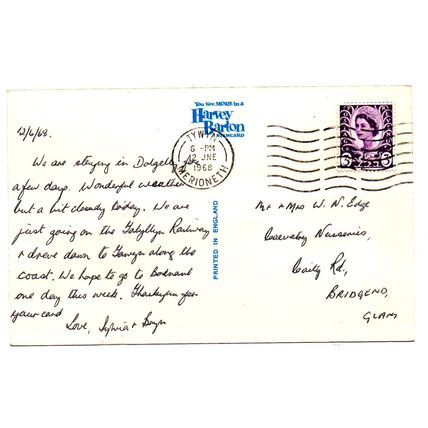 You See MORE in a
Harvey
Barton
POSTCARD
TYWYN
6 - PM
12 JNE
1968
MERIONETH
3D 3D
PRINTED IN ENGLAND
12/6/68.
We are staying in Dolgelley for
a few days. Wonderful weather
but a bit cloudy today. We are
just going on the Talyllyn Railway
& drove down to Towyn along the
coast. We hope to go to Bodnant
one day this week. Thankyou for
your card
Love, Sylvia &
Mr & Mrs W. N. Edge
Nurseries,
Coity Rd.,
BRIDGEND,
GLAM